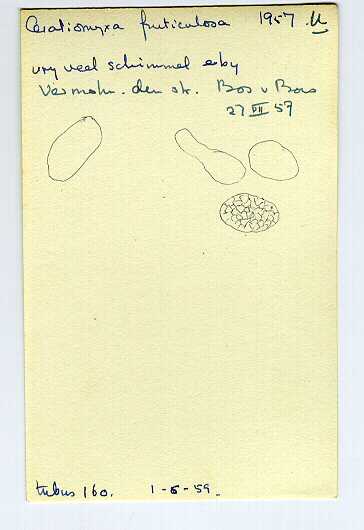 Ceratiomyxa fruticulosa 1957 U
vry veel schimmel erby
Vermolm. den st. Bos v Bos
27 VII 57
tubus 160. 1-6-59.